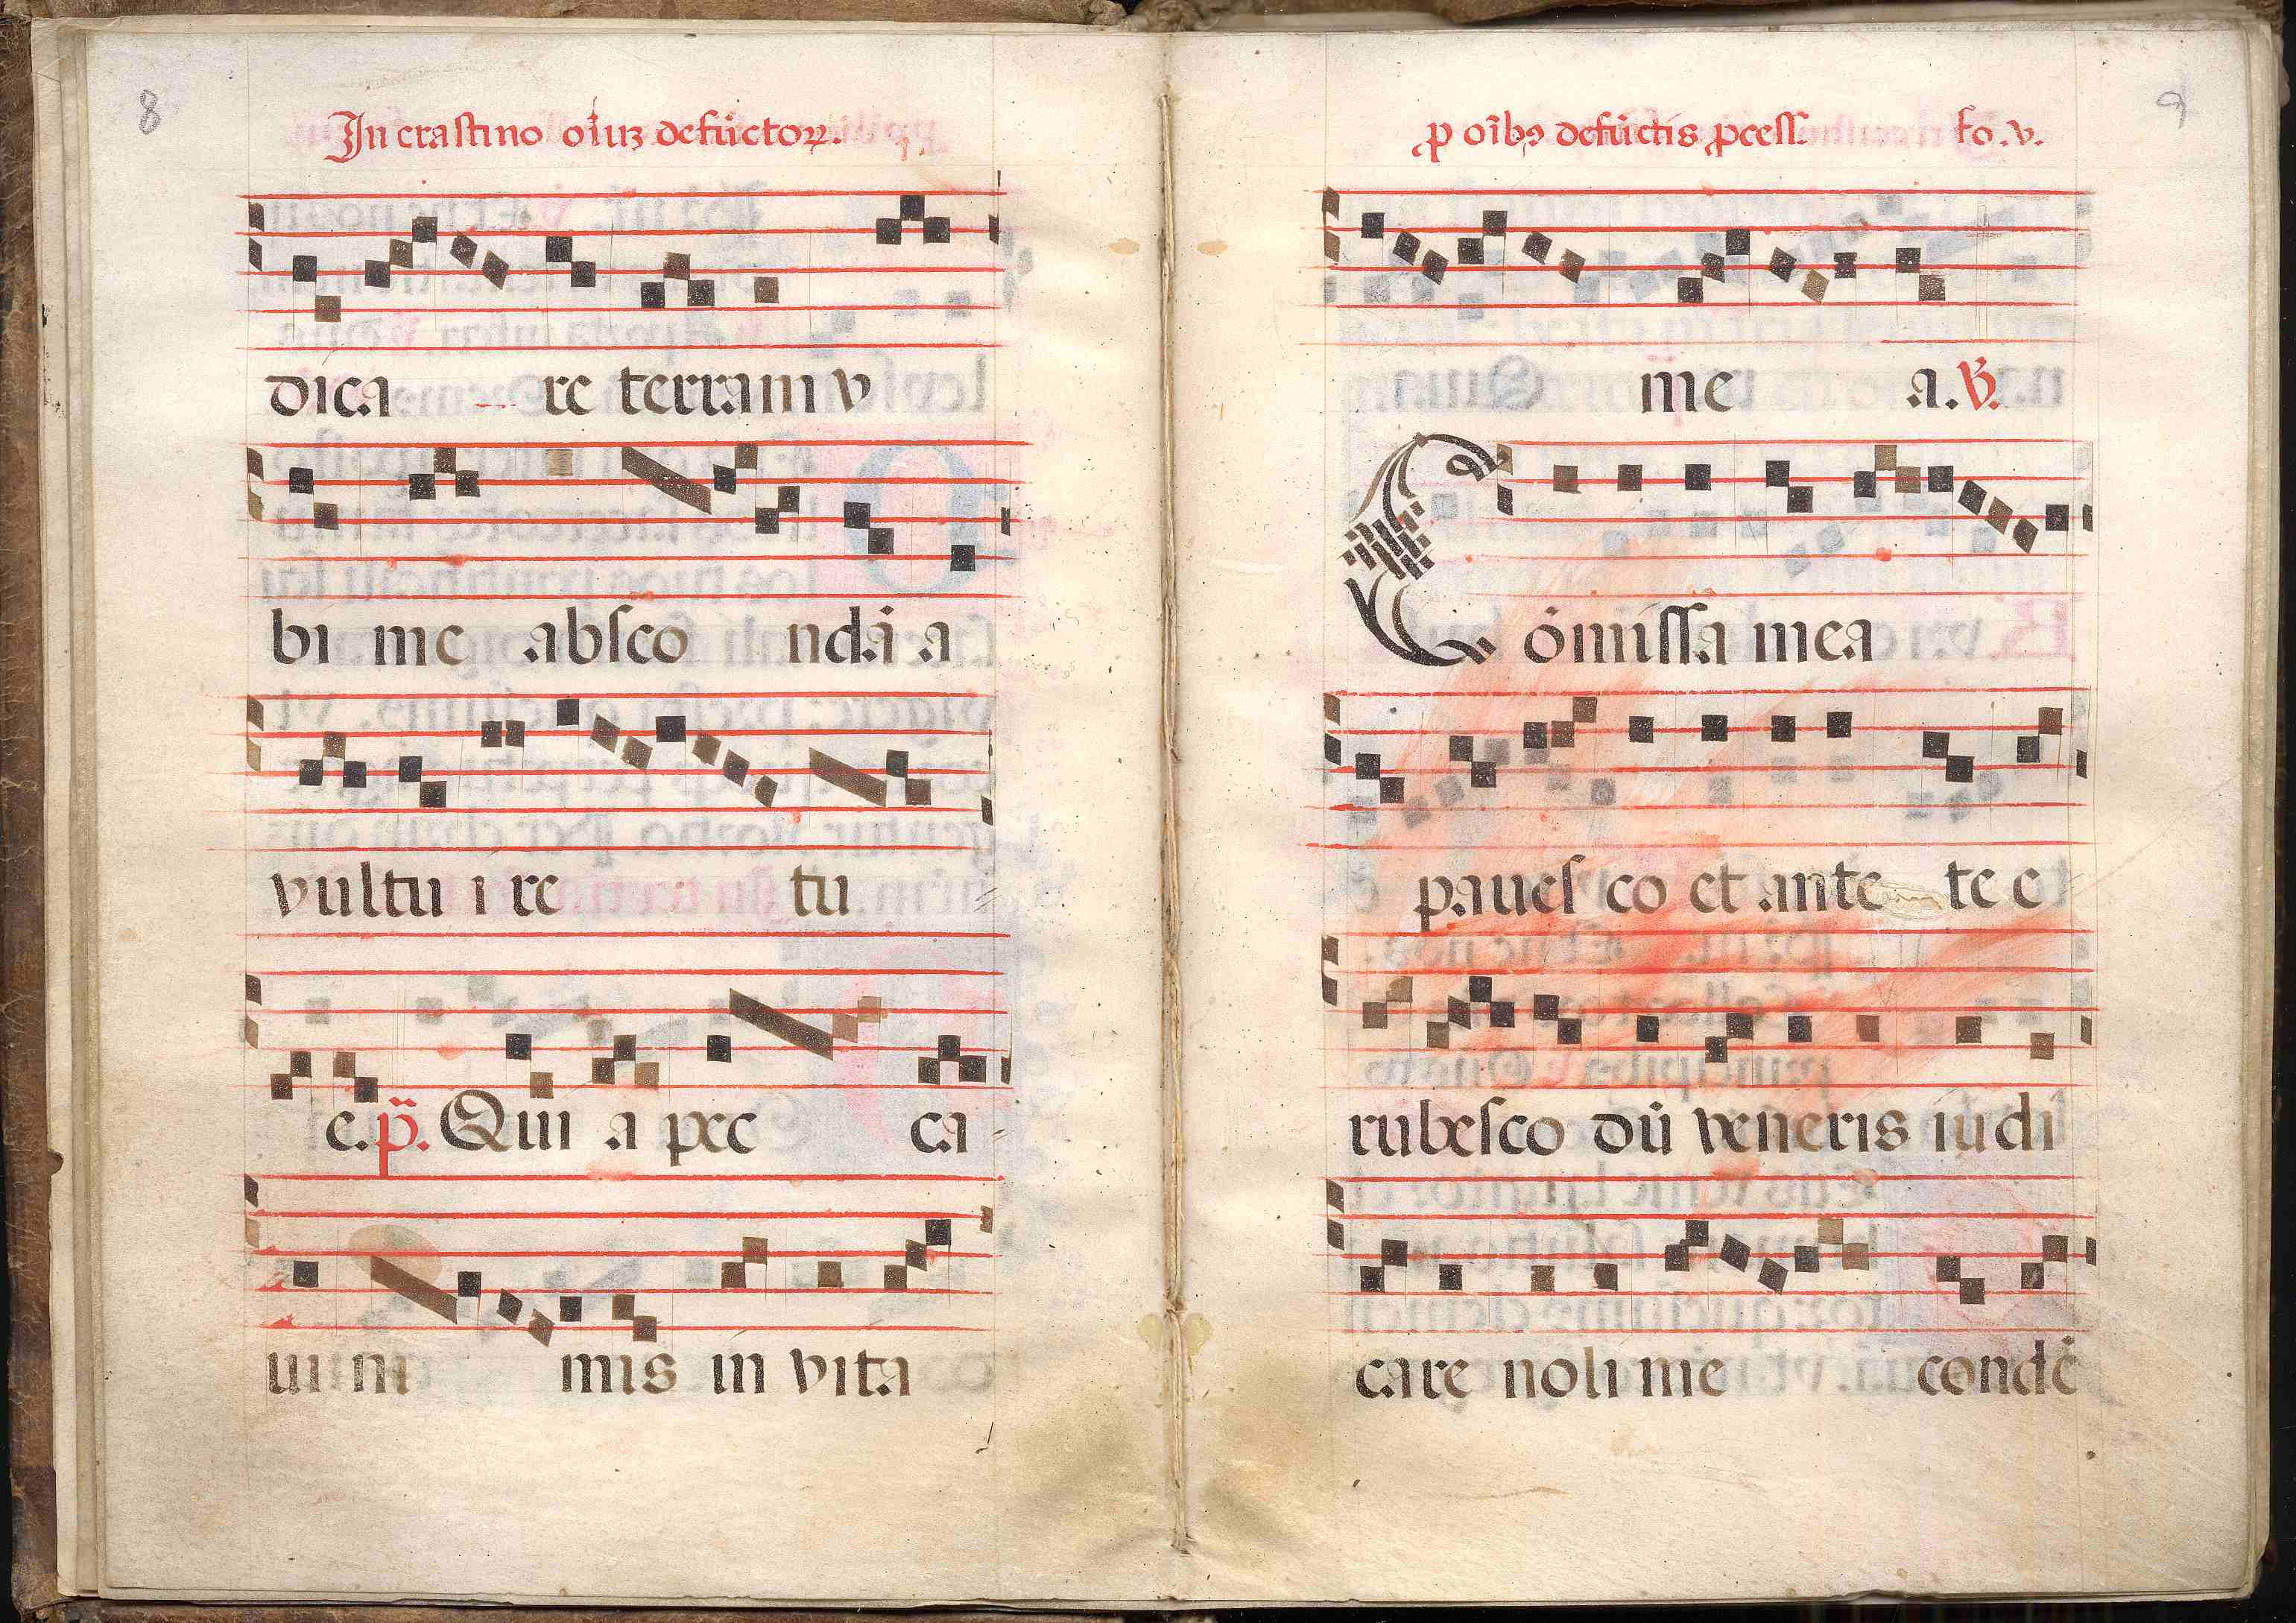 8
In crastino oı̄uꝫ defūctoꝝ.
dica re terram v
bi me absco ndā a
vultu i re tu
e. p̄. Qui a pec ca
ui ni mis in vita
9
ꝓ oı̄bꝰ defūctis ꝓcess. fo. v.
me a. ℣.
Cōmissa mea
pauesco et ante te e
rubesco dū veneris iudi
care noli me condē